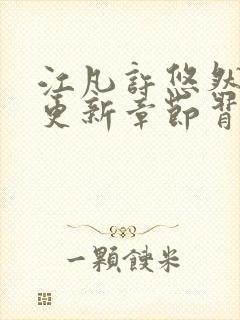 江凡許悠然
更新章節胥
一顆餿米